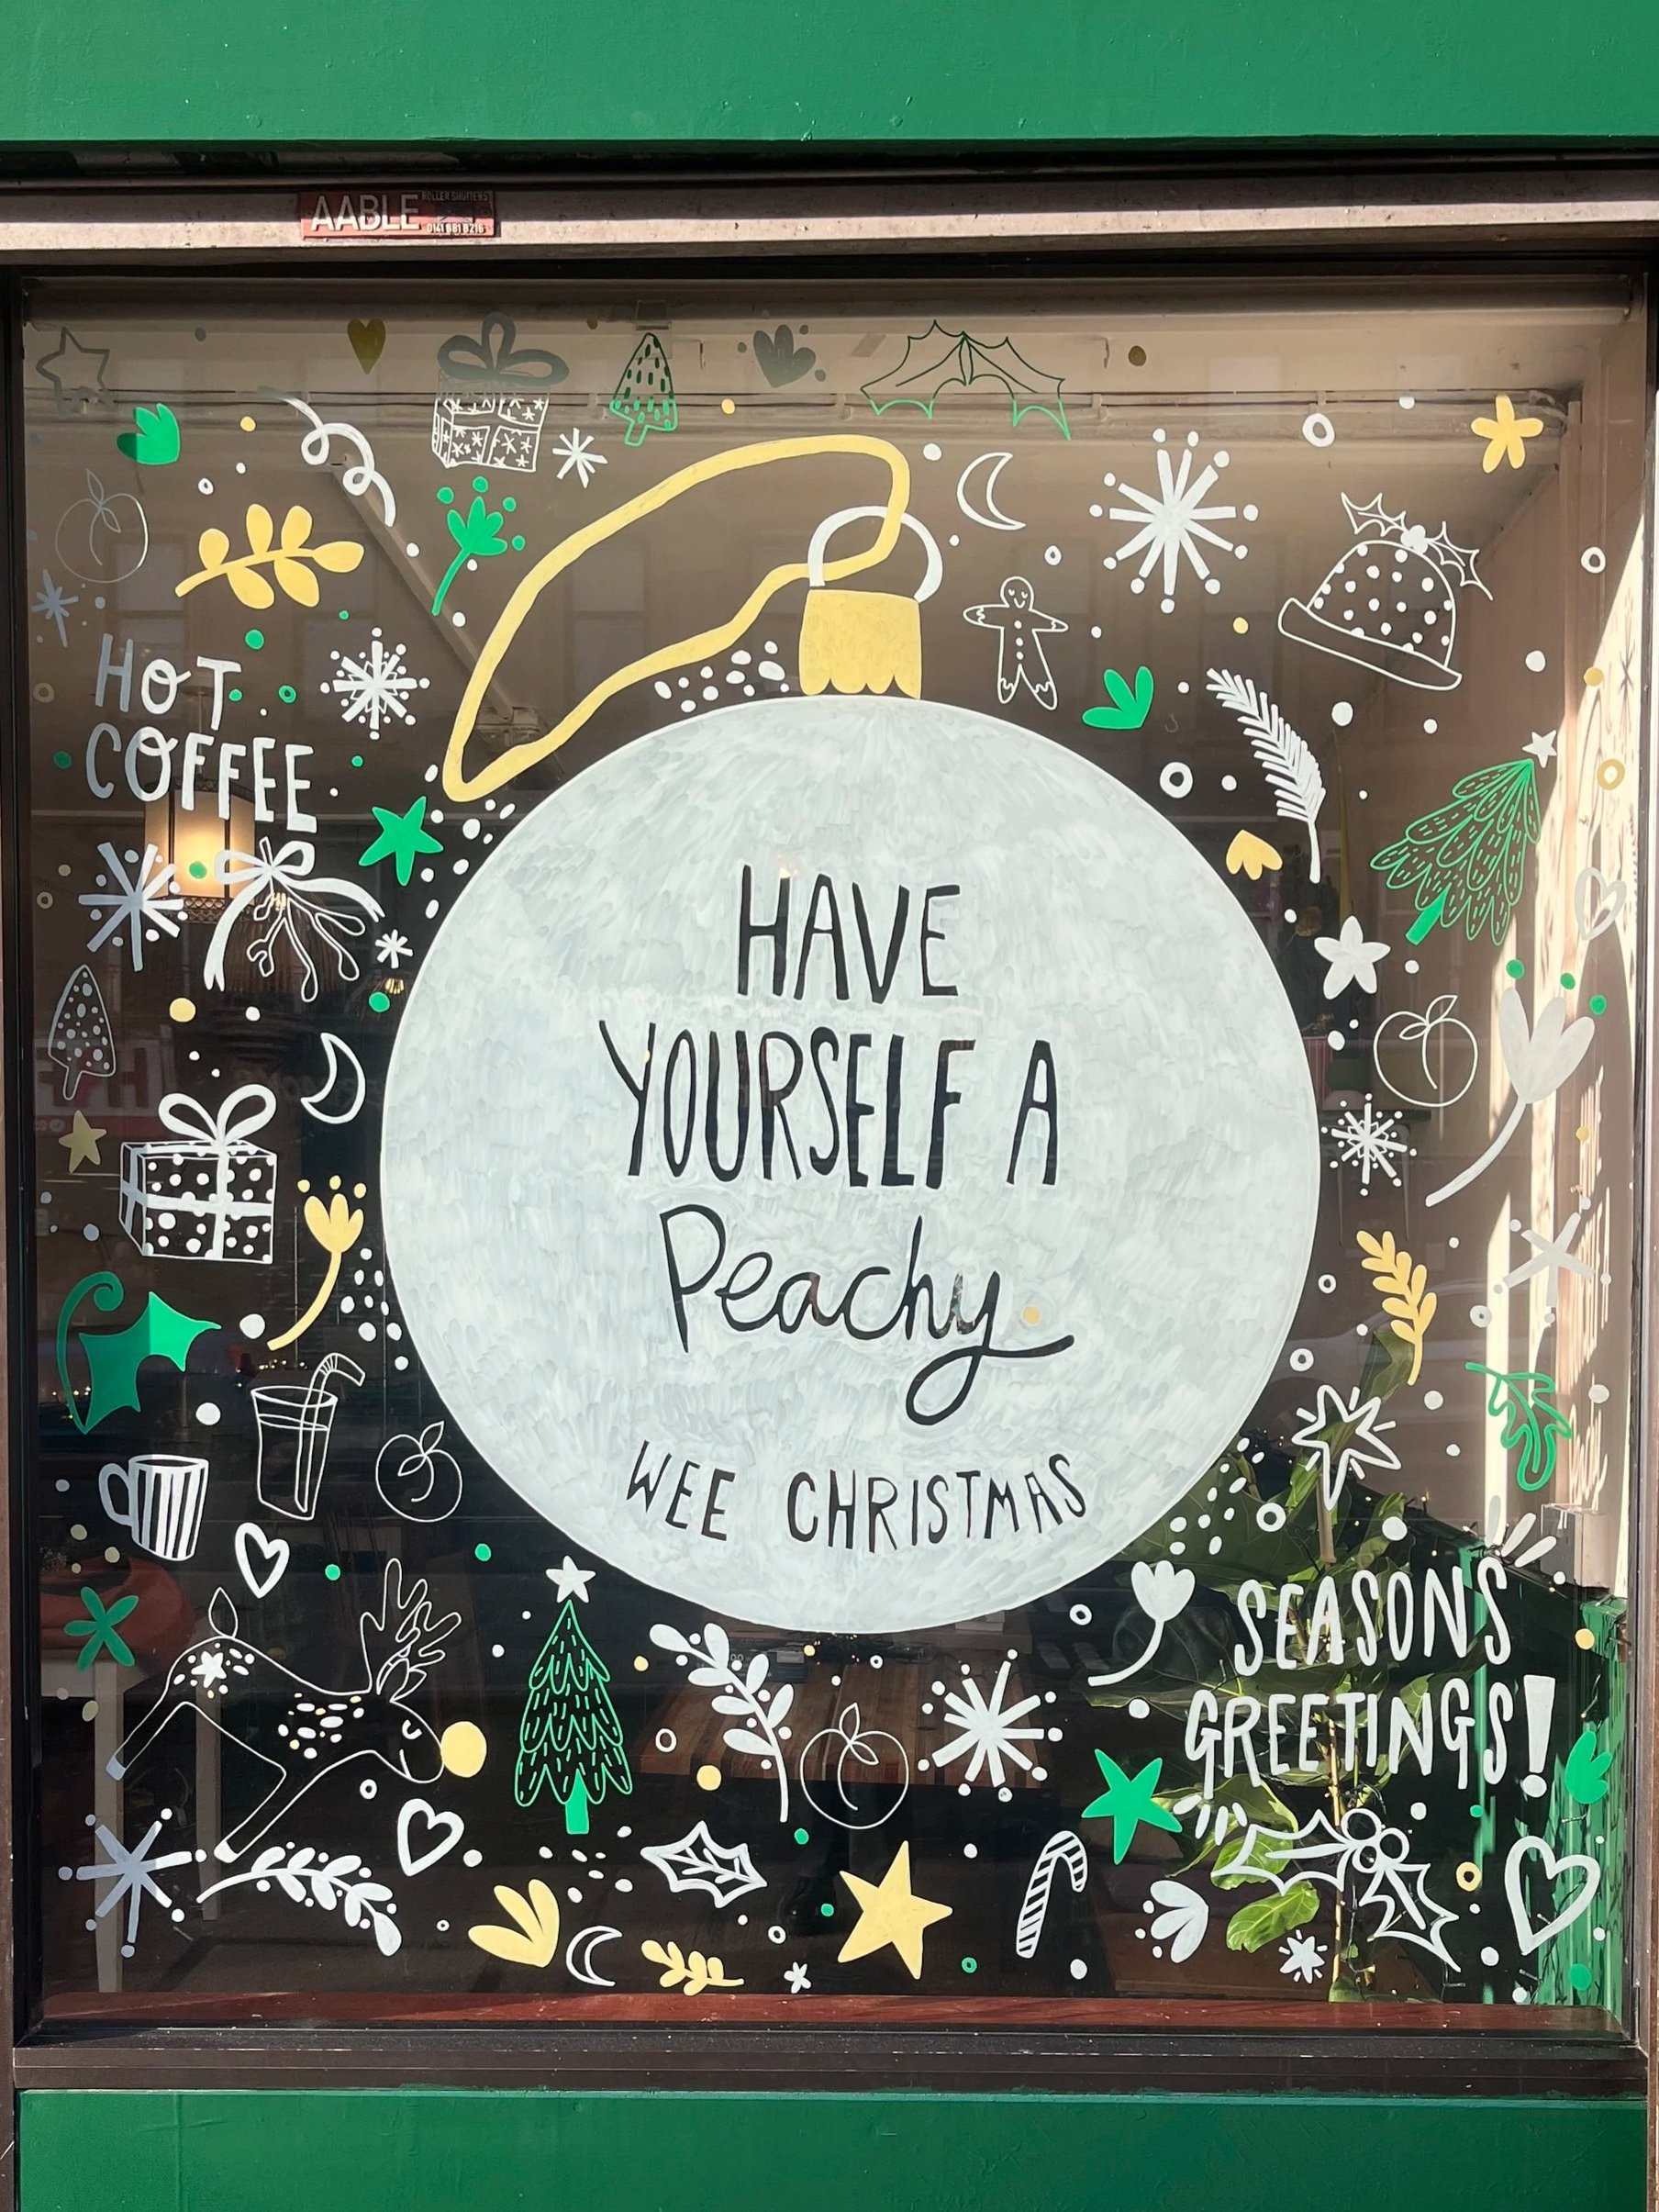 AABLE
ROLLER SHUTTERS
0141 881 8216
HOT
COFFEE
HAVE
YOURSELF A
Peachy
WEE CHRISTMAS
SEASONS
GREETINGS!